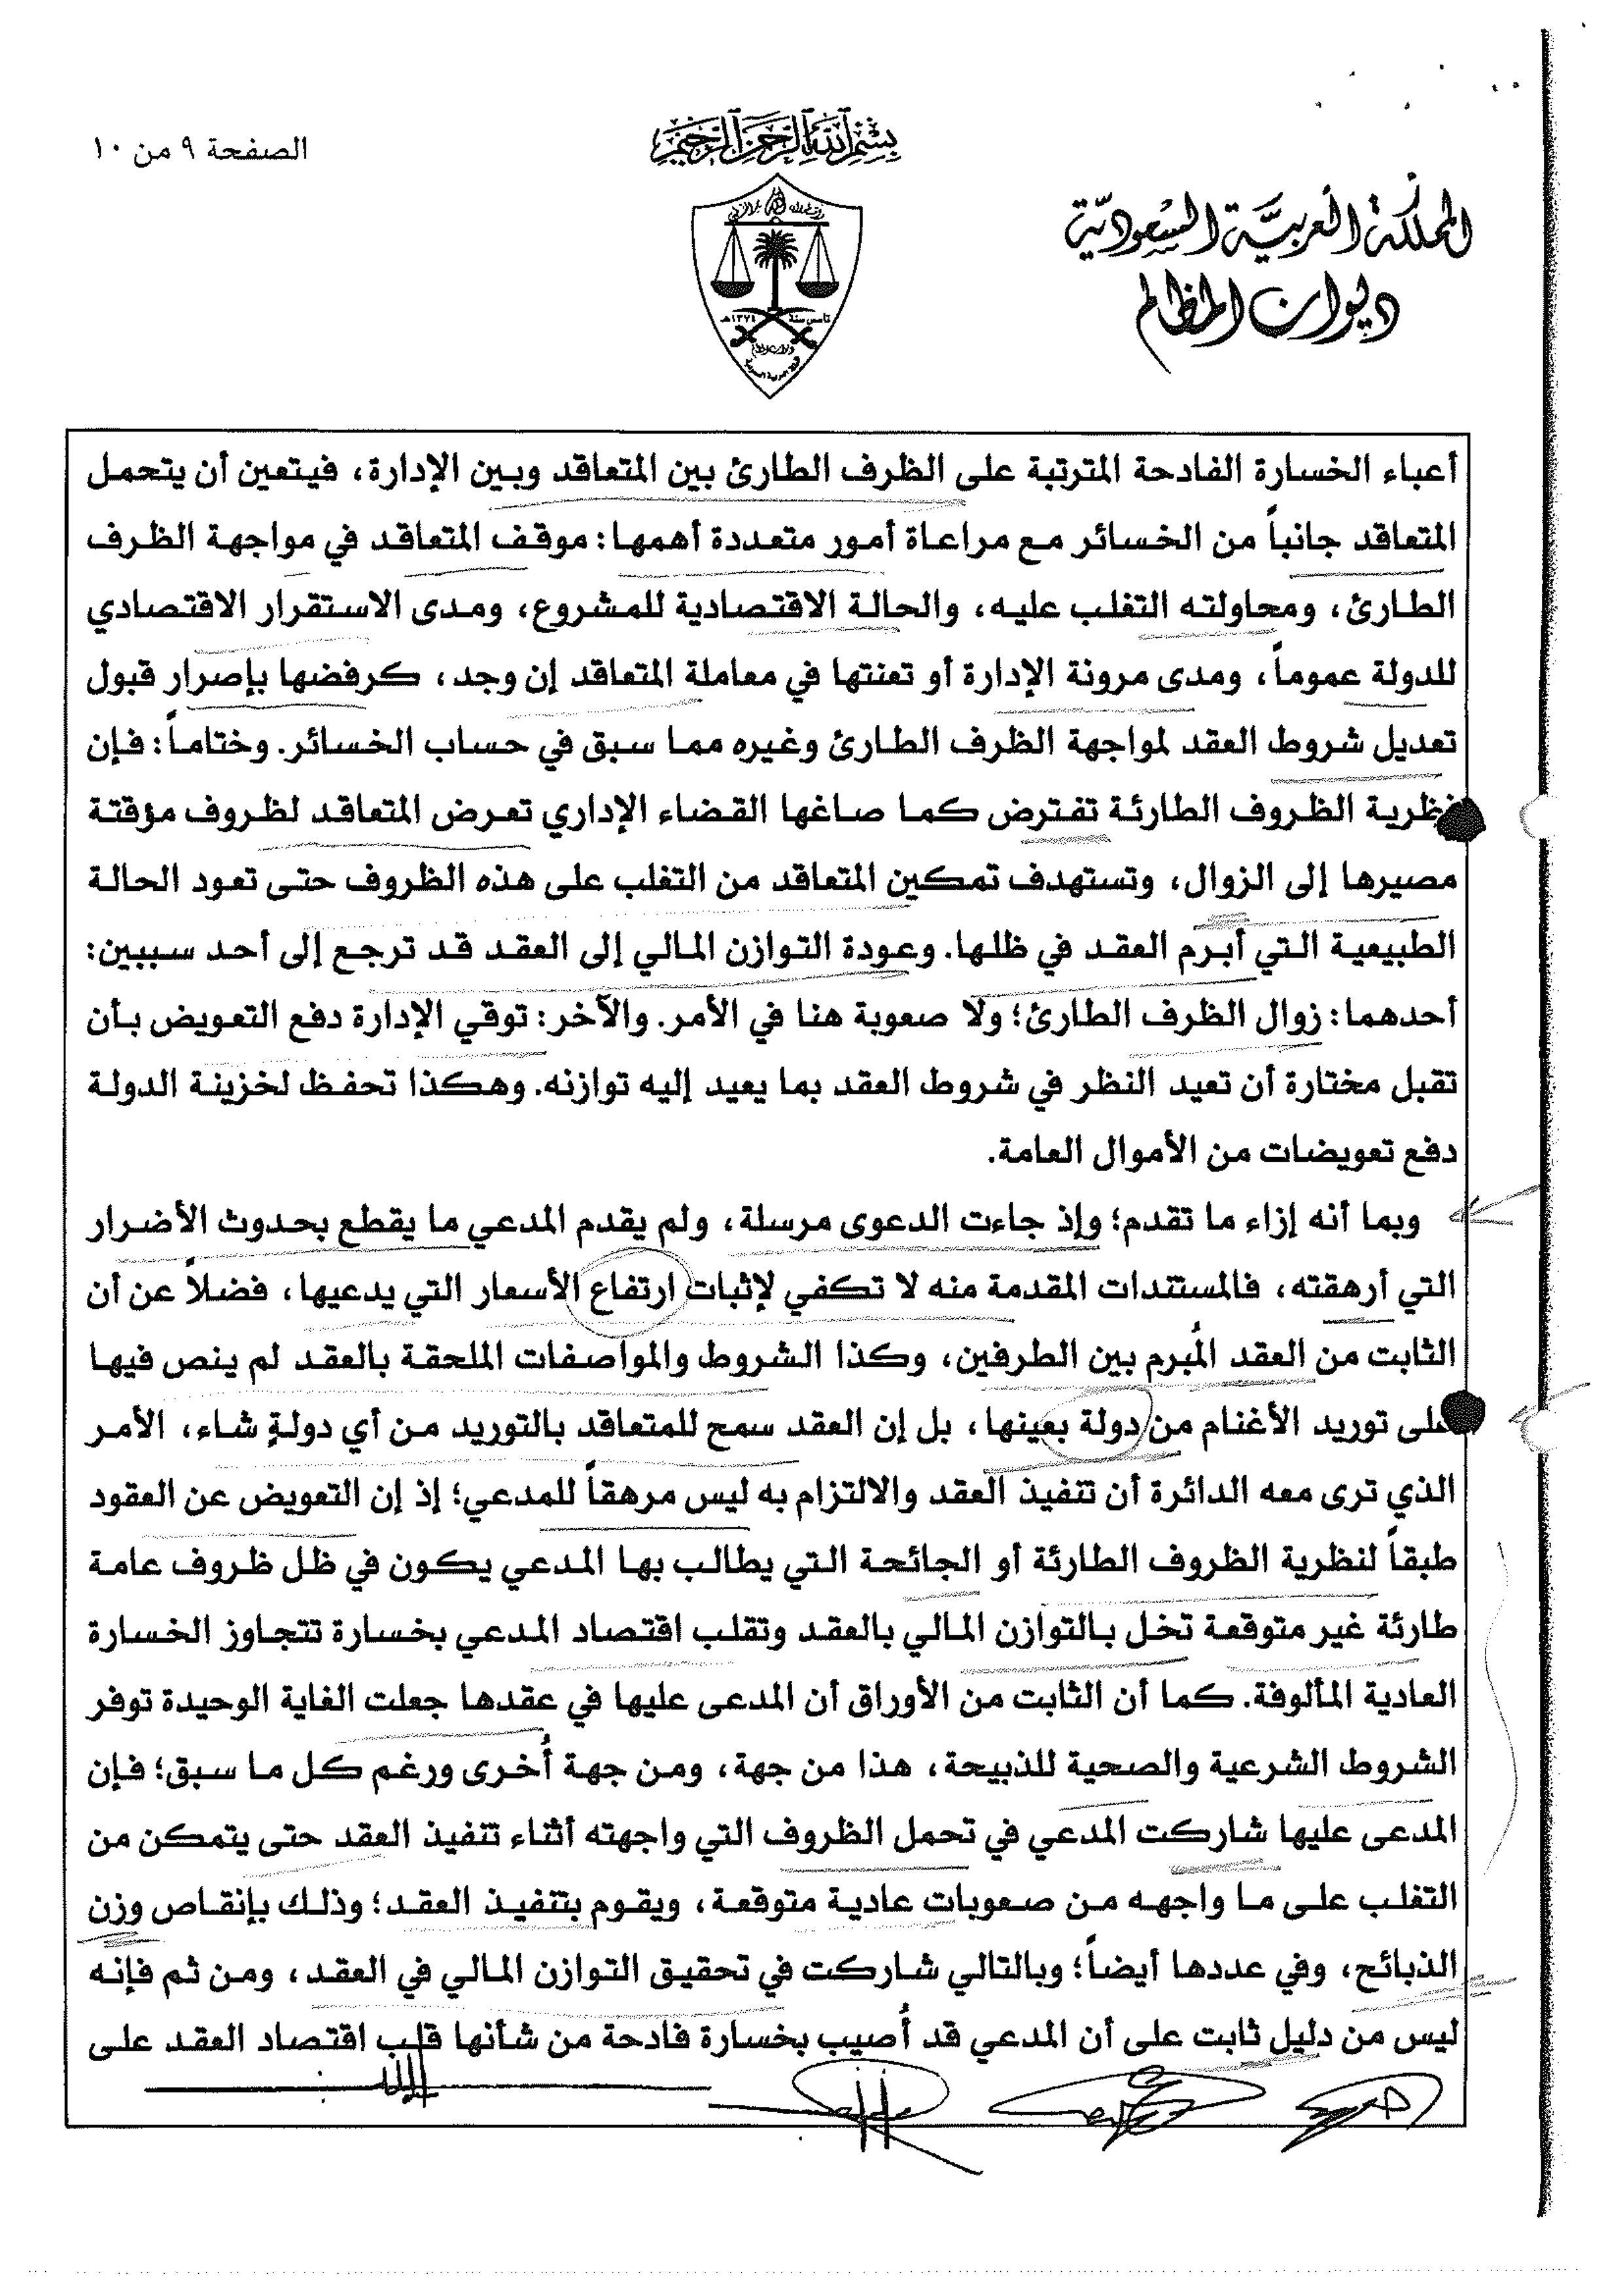 الصفحة ٩ من ١٠
بسم الله الرحمن الرحيم
المملكة العربية السعودية
ديوان المظالم
تأسس سنة ١٣٧٤هـ
ديوان المظالم
أعباء الخسارة الفادحة المترتبة على الظرف الطارئ بين المتعاقد وبين الإدارة، فيتعين أن يتحمل
المتعاقد جانباً من الخسائر مع مراعاة أمور متعددة أهمها: موقف المتعاقد في مواجهة الظرف
الطارئ، ومحاولته التغلب عليه، والحالة الاقتصادية للمشروع، ومدى الاستقرار الاقتصادي
للدولة عموماً، ومدى مرونة الإدارة أو تعنتها في معاملة المتعاقد إن وجد، كرفضها بإصرار قبول
تعديل شروط العقد لمواجهة الظرف الطارئ وغيره مما سبق في حساب الخسائر. وختاماً: فإن
نظرية الظروف الطارئة تفترض كما صاغها القضاء الإداري تعرض المتعاقد لظروف مؤقتة
مصيرها إلى الزوال، وتستهدف تمكين المتعاقد من التغلب على هذه الظروف حتى تعود الحالة
الطبيعية التي أبرم العقد في ظلها. وعودة التوازن المالي إلى العقد قد ترجع إلى أحد سببين:
أحدهما: زوال الظرف الطارئ؛ ولا صعوبة هنا في الأمر. والآخر: توقي الإدارة دفع التعويض بأن
تقبل مختارة أن تعيد النظر في شروط العقد بما يعيد إليه توازنه. وهكذا تحفظ لخزينة الدولة
دفع تعويضات من الأموال العامة.
وبما أنه إزاء ما تقدم؛ وإذ جاءت الدعوى مرسلة، ولم يقدم المدعي ما يقطع بحدوث الأضرار
التي أرهقته، فالمستندات المقدمة منه لا تكفي لإثبات ارتفاع الأسعار التي يدعيها، فضلاً عن أن
الثابت من العقد المُبرم بين الطرفين، وكذا الشروط والمواصفات الملحقة بالعقد لم ينص فيها
على توريد الأغنام من دولة بعينها، بل إن العقد سمح للمتعاقد بالتوريد من أي دولةٍ شاء، الأمر
الذي ترى معه الدائرة أن تنفيذ العقد والالتزام به ليس مرهقاً للمدعي؛ إذ إن التعويض عن العقود
طبقاً لنظرية الظروف الطارئة أو الجائحة التي يطالب بها المدعي يكون في ظل ظروف عامة
طارئة غير متوقعة تخل بالتوازن المالي بالعقد وتقلب اقتصاد المدعي بخسارة تتجاوز الخسارة
العادية المألوفة. كما أن الثابت من الأوراق أن المدعى عليها في عقدها جعلت الغاية الوحيدة توفر
الشروط الشرعية والصحية للذبيحة، هذا من جهة، ومن جهة أُخرى ورغم كل ما سبق؛ فإن
المدعى عليها شاركت المدعي في تحمل الظروف التي واجهته أثناء تنفيذ العقد حتى يتمكن من
التغلب على ما واجهه من صعوبات عادية متوقعة، ويقوم بتنفيذ العقد؛ وذلك بإنقاص وزن
الذبائح، وفي عددها أيضاً؛ وبالتالي شاركت في تحقيق التوازن المالي في العقد، ومن ثم فإنه
ليس من دليل ثابت على أن المدعي قد أُصيب بخسارة فادحة من شأنها قلب اقتصاد العقد على